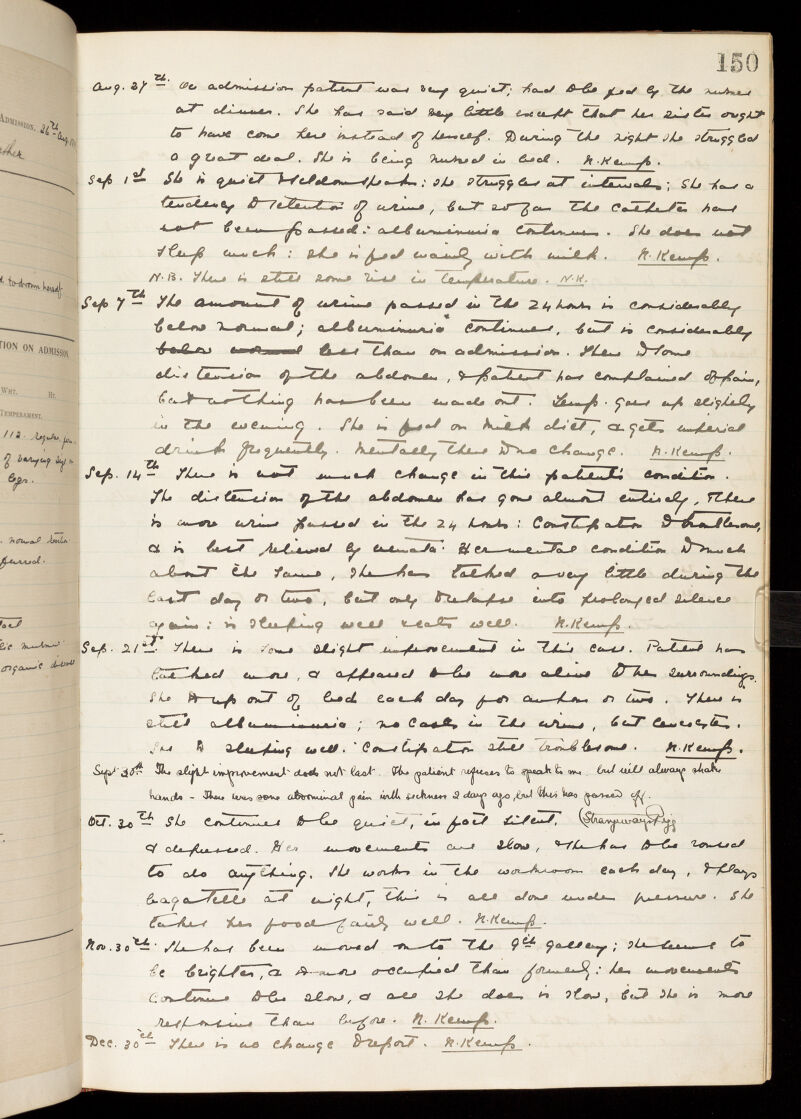 150
Aug. 27th. On admission patient was very quiet; had to be fed by the nurses
at dinner. She has said very little except that her sister ought
to have come here instead of herself. During the night she struggled
a great deal. She is being nursed in bed. N. Kemp.
Sep 1st She is quiet & seldom speaks: she struggles at intervals; she has a
tendency to retention of urine, but so far the catheter has
not been passed: albuminuria continues. She does not
sleep much: she is fed mainly with milk. N. Kemp.
N.B. There is still some rise in temperature. N.K.
Sep 7th The amount of urine passed in the 24 hours is considerably
below normal; albuminuria continues, but is considerably
below normal less than on admission. There is some
distension of the abdomen, & patient has complained of pain,
but nothing has been made out. Temp. goes up slightly
in the evening. She is fed on milk diet, & gets imperial
drink frequently. Mentally there is no change. N. Kemp.
Sep. 14th There is not much change in this patient's condition.
The distension of the abdomen has gone almost entirely, & there
is more urine passed in the 24 hours: Constipation is troublesome,
& is best relieved by enemata. Her mental condition is much
about the same, she has talked a very little during the
last day or two, but only to relapse into prolonged silence
again: is sleeping well & eats well. N. Kemp.
Sep. 21st There is some slight improvement in this case. Patient has
talked more, & appeared to be more alive to her surroundings.
She is up out of bed each day for an hour or two. There is
still albuminuria; no casts in the urine, but leucocytes.
She is sleeping well. Constipation still troublesome. N. Kemp.
Sept 30th The slight improvement does not last. The patient refuses to speak to me. but will always shake
hands - There was some abdominal pain with sickness 2 days ago, but this has passed off.
Oct. 30th She continues to be quiet, in fact silent,
& depressed. Her movements are slow, & she has to be roused
to do anything. She works in the workroom each day, & plays
bagatelle at night, this is all done under pressure. She
takes her food fairly well. N. Kemp.
Nov. 30th. She has been moved on to the 9th gallery; she seems to
be brighter, & is more occupied than formerly: her movements
continue to be slow, & all she does is slow, but she is more
responsive than before. N. Kemp.
Dec. 30th There is no change to report. N. Kemp.
Admission, 26th Aug
to drown herself
TION ON ADMISSION
WHT. HT.
TEMPERAMENT.
112. regular
of varying
legs.
furred.
organic disease